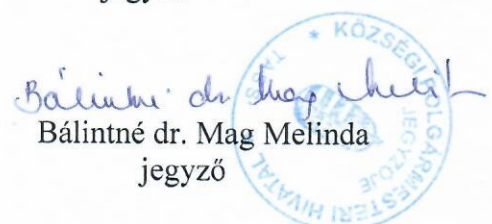 Bálintné dr. Mag Melinda
Bálintné dr. Mag Melinda
jegyző
KÖZSÉGI POLGÁRMESTERI HIVATAL
JEGYZŐJE